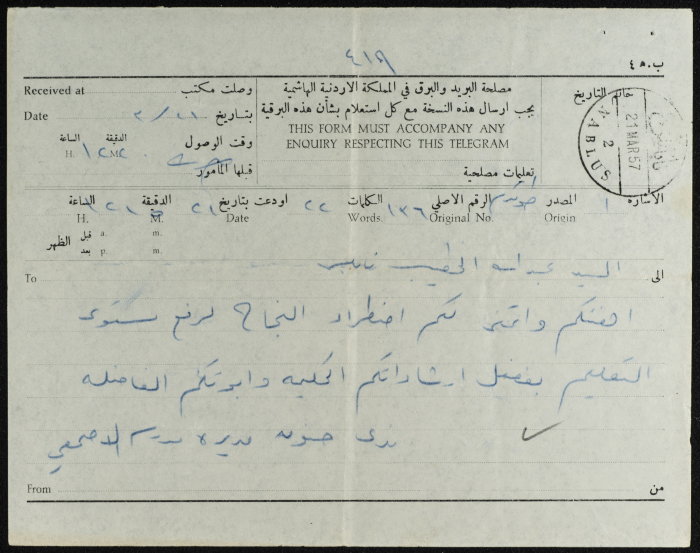 ٤١٩
ب.ه ٤
Received at وصلت مكتب
Date بتاريخ ٢١/٣
الدقيقة الساعة
وقت الوصول
H. M.
قبلها المأمور
مصلحة البريد والبرق في المملكة الاردنية الهاشمية
يجب ارسال هذه النسخة مع كل استعلام بشأن هذه البرقية
THIS FORM MUST ACCOMPANY ANY
ENQUIRY RESPECTING THIS TELEGRAM
تعليمات مصلحية
خاتم التاريخ
NABLUS
2
21 MAR 57
نابلس
الاشارة ا المصدر طولكرم الرقم الاصلي ١٣٦ الكلمات ٢٢ اودعت بتاريخ ٢١ الدقيقة الساعة
Origin Original No. Words. Date M. H.
قبل a. m. m.
الظهر
بعد p. m.
الى السيد عبدالله الخطيب نابلس To
اهنئكم واتمنى لكم اضطراد النجاح لرفع مستوى
التعليم بفضل ارشاداتكم الحكيمه وابوتكم الفاضله
ندى حنون مديرة مدرسة
From من